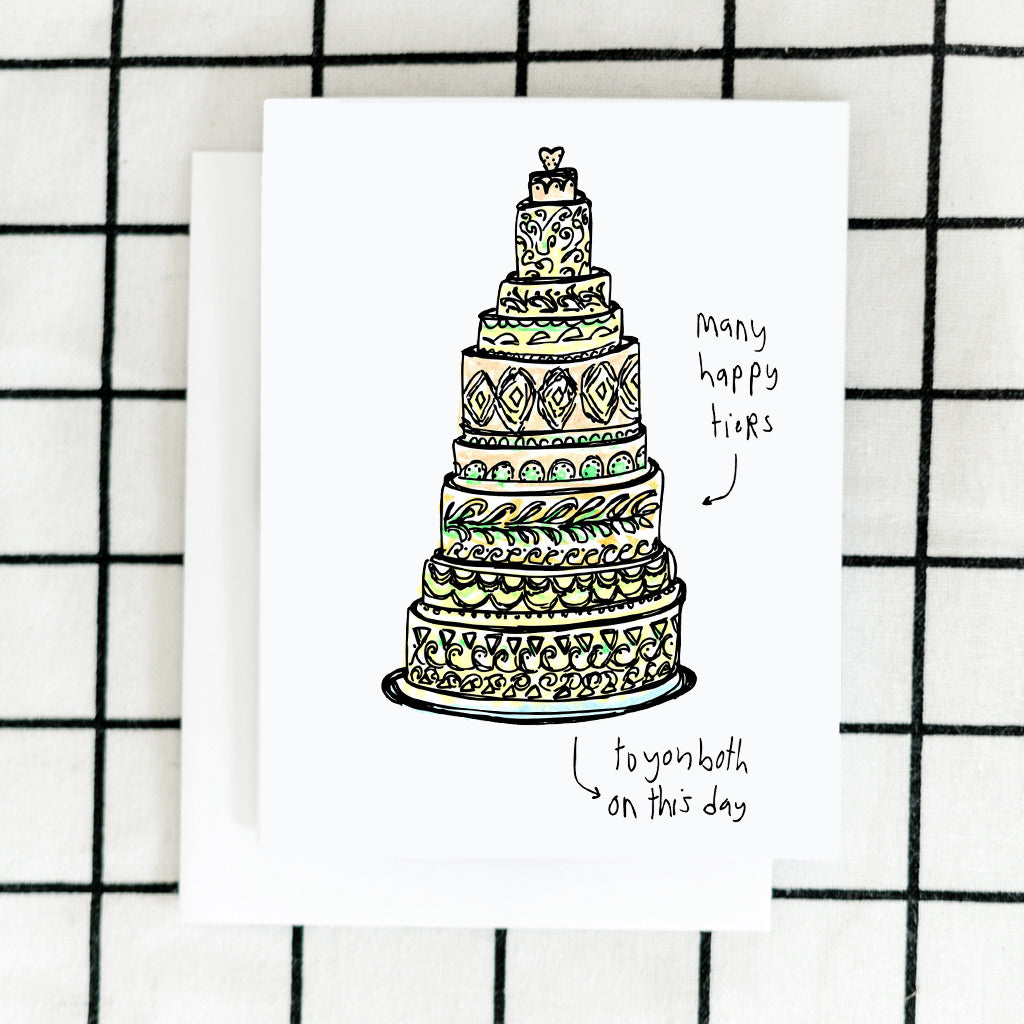 many
happy
tieRs
to you both
on this day